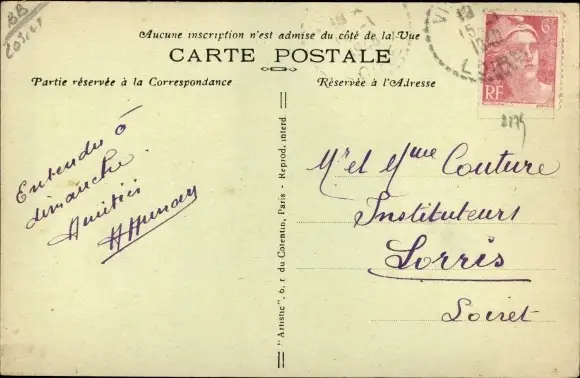 BB
Aucune inscription n'est admise du côté de la Vue
CARTE POSTALE
Partie réservée à la Correspondance
Réservée à l'Adresse
6F
RF
Entendu à
dimanche.
Amitiés
"Artistic", 6, r du Cotentin, Paris - Reprod. interd.
Mr et Mme Couture
Instituteurs
Lorris
Loiret